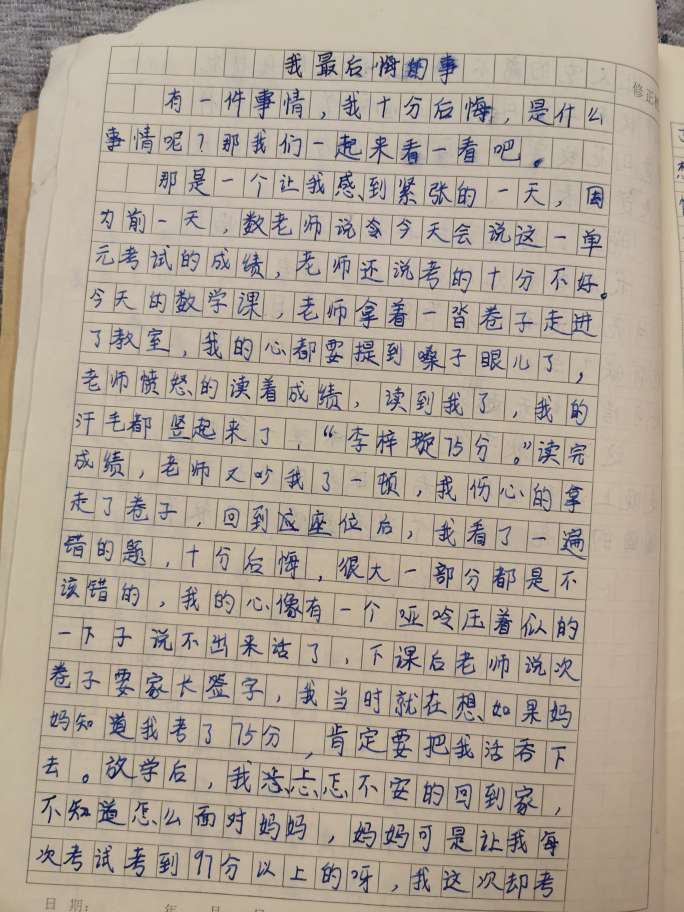 我最后悔的事
有一件事情，我十分后悔，是什么
事情呢？那我们一起来看一看吧。
那是一个让我感到紧张的一天，因
为前一天，数老师说今天会说这一单
元考试的成绩，老师还说考的十分不好。
今天的数学课，老师拿着一沓卷子走进
了教室，我的心都要提到嗓子眼儿了，
老师愤怒的读着成绩，读到我了，我的
汗毛都竖起来了，“李梓璇75分。”读完
成绩，老师又吵我了一顿，我伤心的拿
走了卷子，回到座位后，我看了一遍
错的题，十分后悔，很大一部分都是不
该错的，我的心像有一个哑冷压着似的
一下子说不出来话了，下课后老师说次
卷子要家长签字，我当时就在想如果妈
妈知道我考了75分，肯定要把我活吞下
去。放学后，我忐忑不安的回到家，
不知道怎么面对妈妈，妈妈可是让我每
次考试考到97分以上的呀，我这次却考
日期： 年 月 日
修正